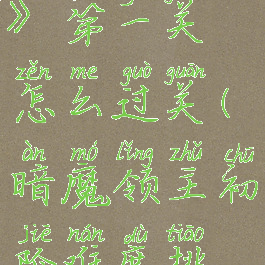 》 第一关
zěn me guò guān
怎么过关(
àn mó lǐng zhǔ chū
暗魔领主初
jiē nán dù tiāo
阶难度挑